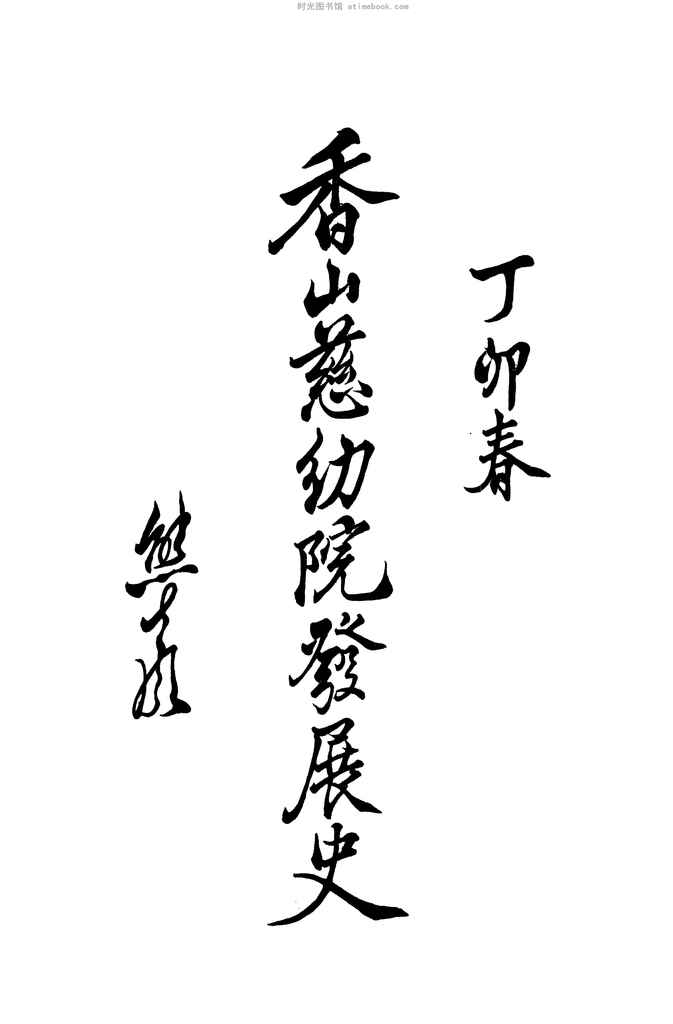 时光图书馆 atimebook.com
丁卯春
香山慈幼院發展史
熊十力